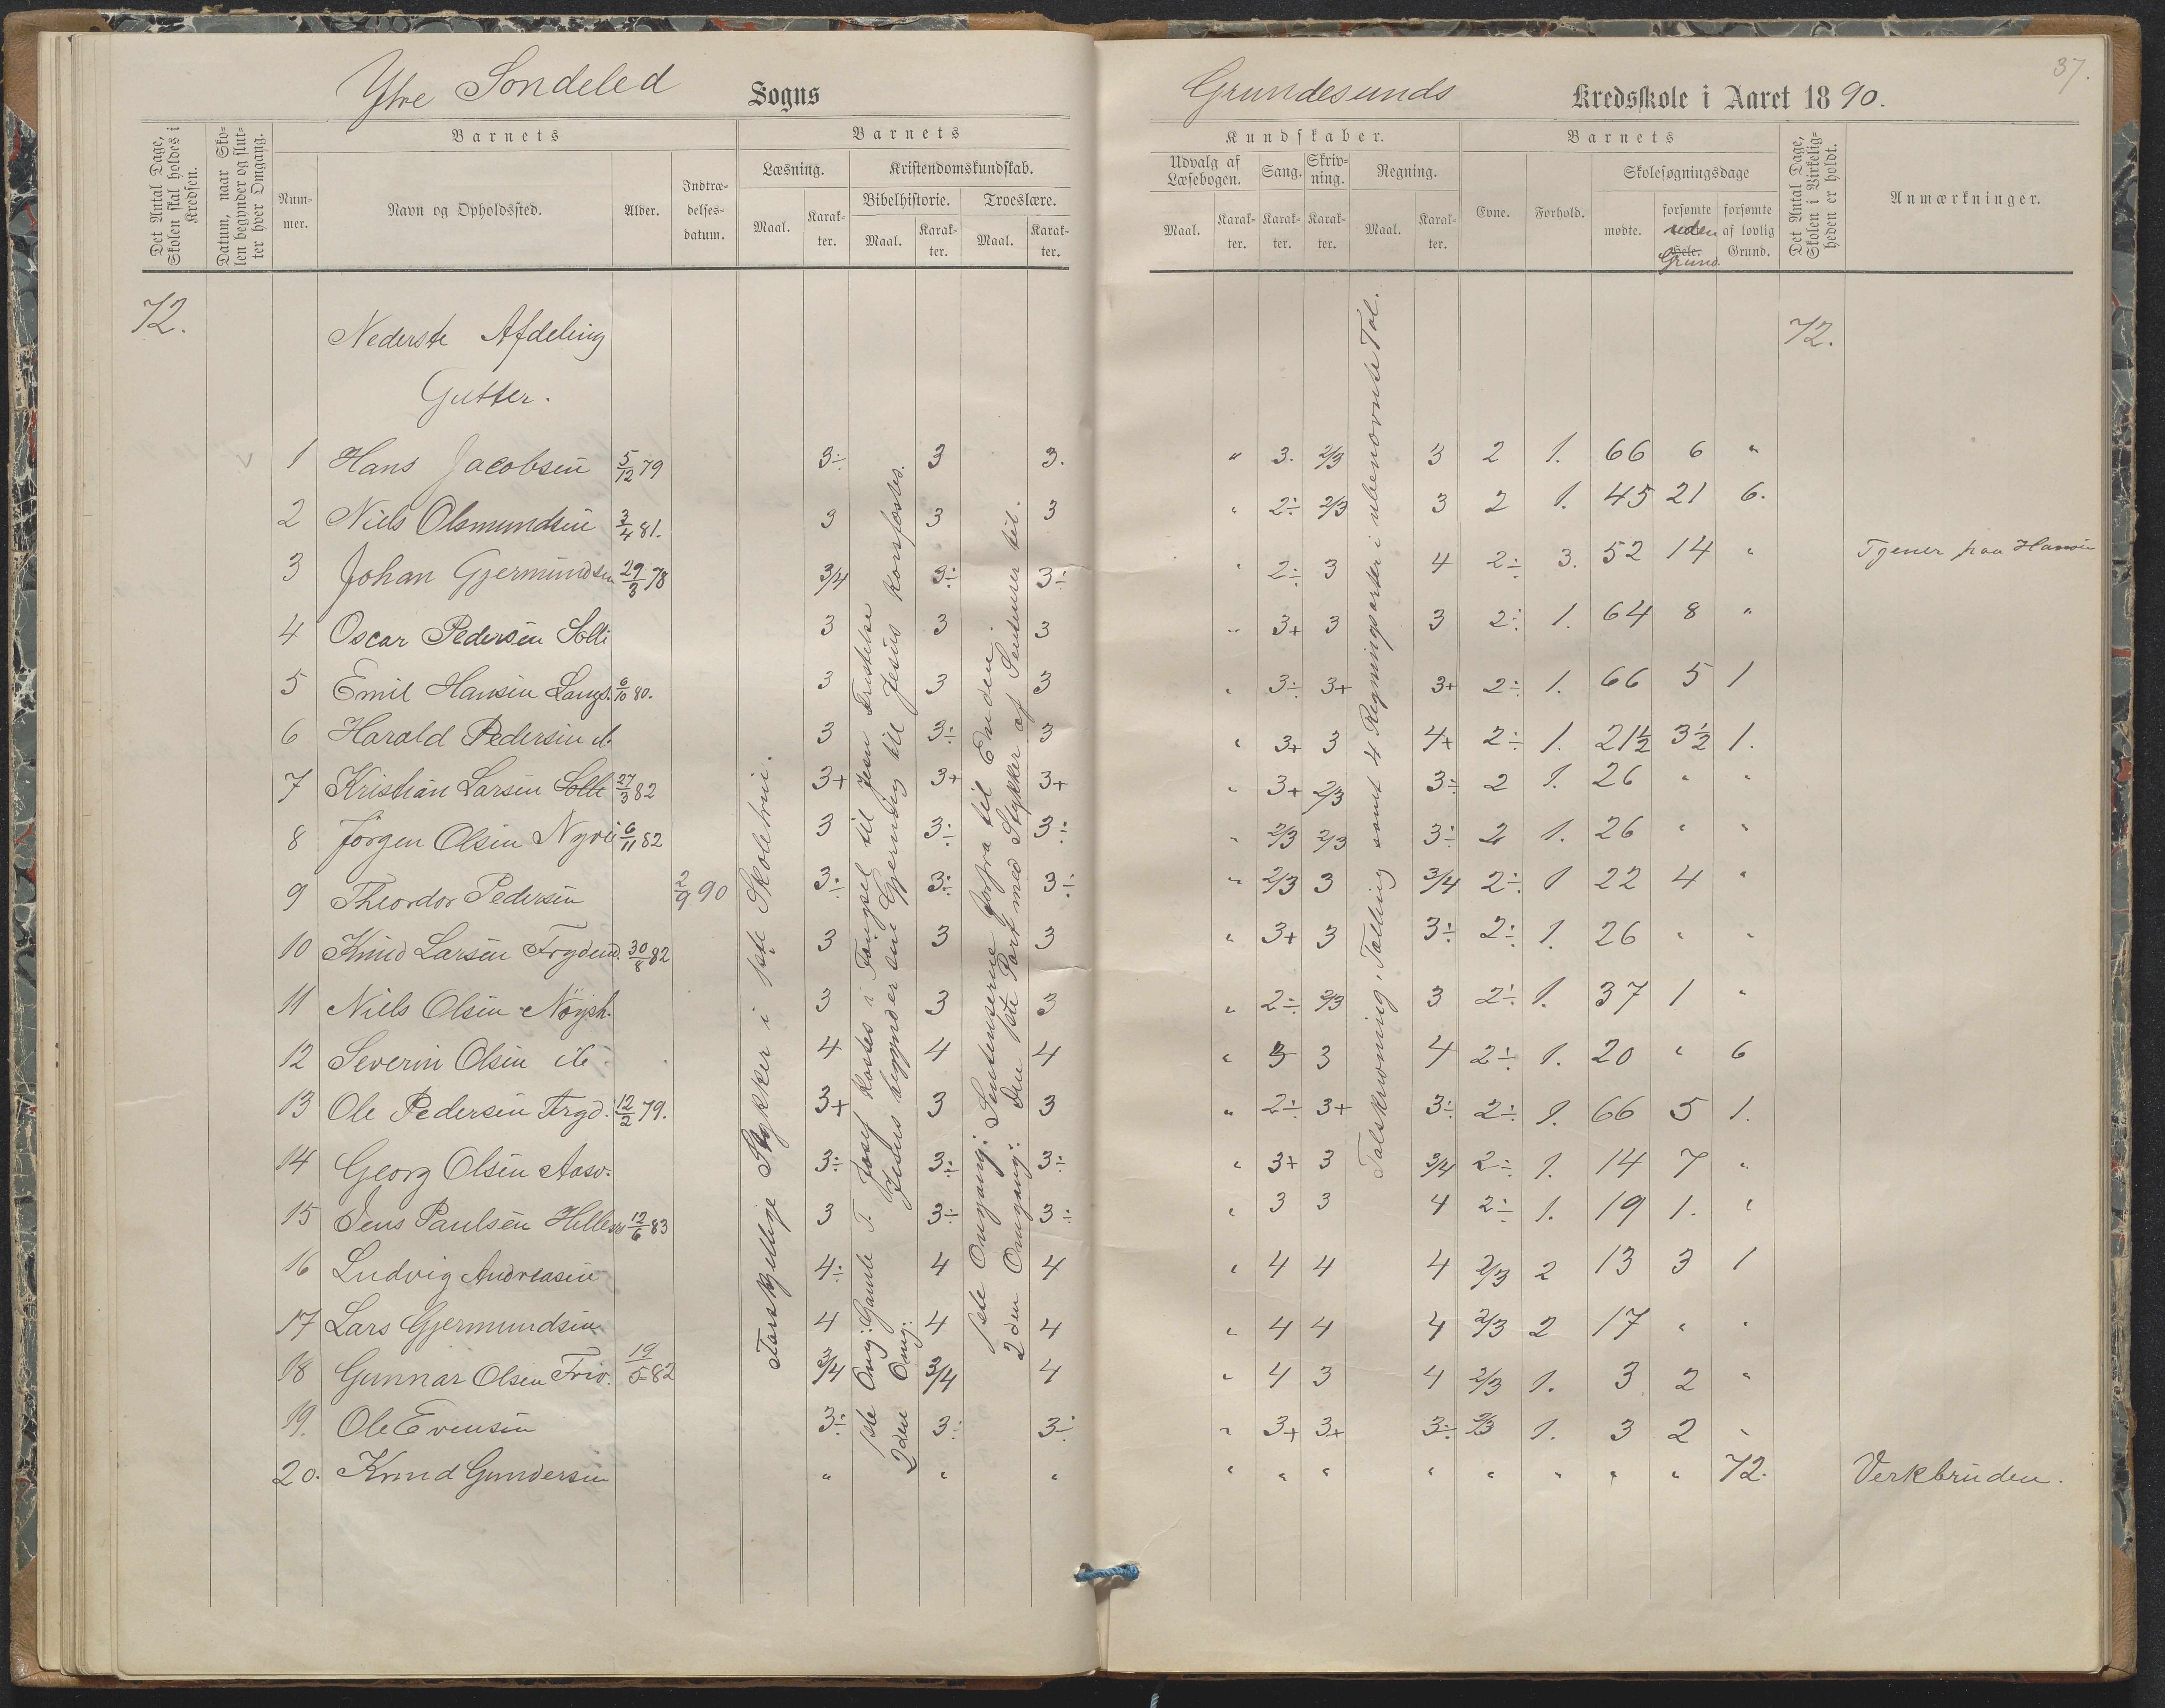 Ytre Sondeled Sogns
Det Antal Dage, Skolen skal holdes i Kredsen.
Datum, naar Skolen begynder og slutter hver Omgang.
Barnets
Nummer.
Navn og Opholdssted.
Alder.
Indtrædelsesdatum.
Barnets
Læsning.
Maal.
Karakter.
Kristendomskundskab.
Bibelhistorie.
Maal.
Karakter.
Troeslære.
Maal.
Karakter.
72.
Nederste Afdeling
Gutter.
1 Hans Jacobsen 5/12 79 3÷ 3 3.
2 Niels Olsmundsen 3/4 81. 3 3 3
3 Johan Gjermundsen 29/3 78 3/4 3÷ 3÷
4 Oscar Pedersen Solli 3 3 3
5 Emil Hansen Langs. 6/10 80. 3 3 3
6 Harald Pedersen 3 3÷ 3
7 Kristian Larsen Solli 27/3 82 3+ 3+ 3+
8 Jørgen Olsen Nyvei 6/11 82 3 3÷ 3÷
9 Theordor Pedersen 2/9 90 3÷ 3÷ 3÷
10 Knud Larsen Frydend. 30/8 82 3 3 3
11 Niels Olsen Nøysk. 3 3 3
12 Severin Olsen ib 4 4 4
13 Ole Pedersen Fryd. 12/2 79. 3+ 3 3
14 Georg Olsen Aasv. 3÷ 3÷ 3÷
15 Jens Paulsen Helles 12/6 83 3 3÷ 3÷
16 Ludvig Andreasen 4÷ 4 4
17 Lars Gjermundsen 4 4 4
18 Gunnar Olsen Friv. 19/5 82 3/4 3/4 4
19. Ole Evensen 3÷ 3÷ 3÷
20. Knud Gundersen " " "
Forskjellige Stykker i 1ste Skoletrin.
1ste Omg: Gamle T. Josef kastes i Fængsel til Jesu Fristelse
2den Omg: Jesus begynder en Gjerning til Jesus korsfæstes.
1ste Omgang: Sentenserne forfra til Enden.
2den Omgang: Den 1ste Part med Stykker af Sentenser til.
37.
Grundesunds Kredsskole i Aaret 1890.
Kundskaber.
Udvalg af Læsebogen.
Maal.
Karakter.
Sang.
Karakter.
Skrivning.
Karakter.
Regning.
Maal.
Karakter.
Barnets
Evne.
Forhold.
Skolesøgningsdage
mødte.
forsømte uden Grund.
forsømte af lovlig Grund.
Det Antal Dage, Skolen i Virkeligheden er holdt.
Anmærkninger.
72.
" 3. 2/3 3 2 1. 66 6 "
" 2÷ 2/3 3 2 1. 45 21 6.
" 2÷ 3 4 2÷ 3. 52 14 " Tjener paa
" 3+ 3 3 2÷ 1. 64 8 "
" 3÷ 3+ 3+ 2÷ 1. 66 5 1
" 3+ 3 4+ 2÷ 1. 21½ 3½ 1.
" 3+ 2/3 3÷ 2 1. 26 " "
" 2/3 2/3 3÷ 2 1. 26 " "
" 2/3 3 3/4 2÷ 1 22 4 "
" 3+ 3 3÷ 2÷ 1. 26 " "
" 2÷ 2/3 3 2÷ 1. 37 1 "
" 3 3 4 2÷ 1. 20 " 6
" 2÷ 3+ 3÷ 2÷ 1. 66 5 1.
" 3+ 3 3/4 2÷ 1. 14 7 "
" 3 3 4 2÷ 1. 19 1. "
" 4 4 4 2/3 2 13 3 1
" 4 4 4 2/3 2 17 " "
" 4 3 4 2/3 1. 3 2 "
" 3+ 3+ 3÷ 2/3 1. 3 2 "
" " " " " " " " 72. Verkbruden.
Talskrivning, Tælling samt 4 Regningsarter i ubenævnte Tal.